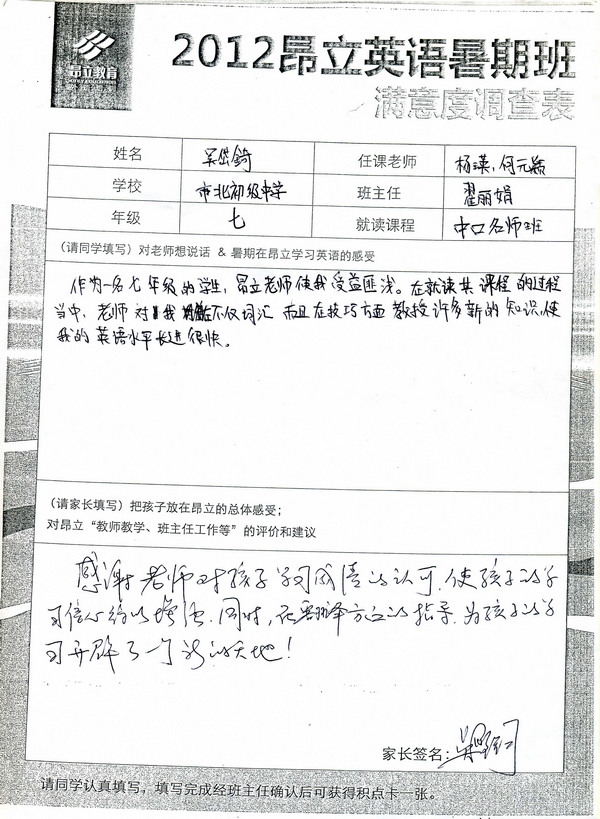 昂立教育
2012昂立英语暑期班
满意度调查表
姓名 任课老师 杨瑛,何元
学校 市北初级中学 班主任 翟丽娟
年级 七 就读课程 中口名师班
(请同学填写)对老师想说话 & 暑期在昂立学习英语的感受
作为一名七年级的学生,昂立老师使我受益匪浅。在就读其课程的过程
当中,老师对我不仅词汇而且在技巧方面教授许多新的知识,使
我的英语水平长进很快。
(请家长填写)把孩子放在昂立的总体感受;
对昂立“教师教学、班主任工作等”的评价和建议
感谢老师对孩子学习成绩的认可,使孩子的学
习信心给以增强,同时,在方方面的指导,为孩子的学
习开辟了一个新的天地!
家长签名:
请同学认真填写,填写完成经班主任确认后可获得积点卡一张。